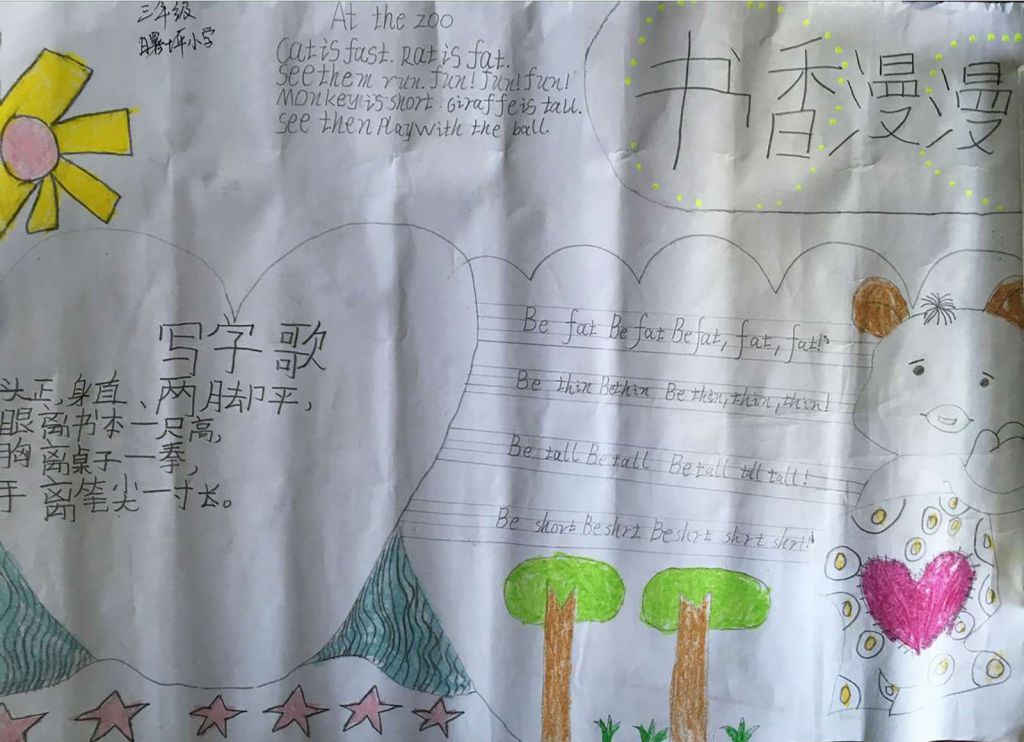 三年级
曙坪小学
At the zoo
Cat is fast. Rat is fat.
See them run. fun! fun! fun!
Monkey is short. Giraffe is tall.
See then Play with the ball.
书香漫漫
写字歌
头正,身直、两脚却平,
眼离书本一尺高,
胸离桌子一拳,
手离笔尖一寸长。
Be fat Be fat Be fat, fat, fat!
Be thin Bethin Be thin, thin, thin!
Be tall Be tall Be tall tll tall!
Be short Be shrt Be shrt shrt shrt!